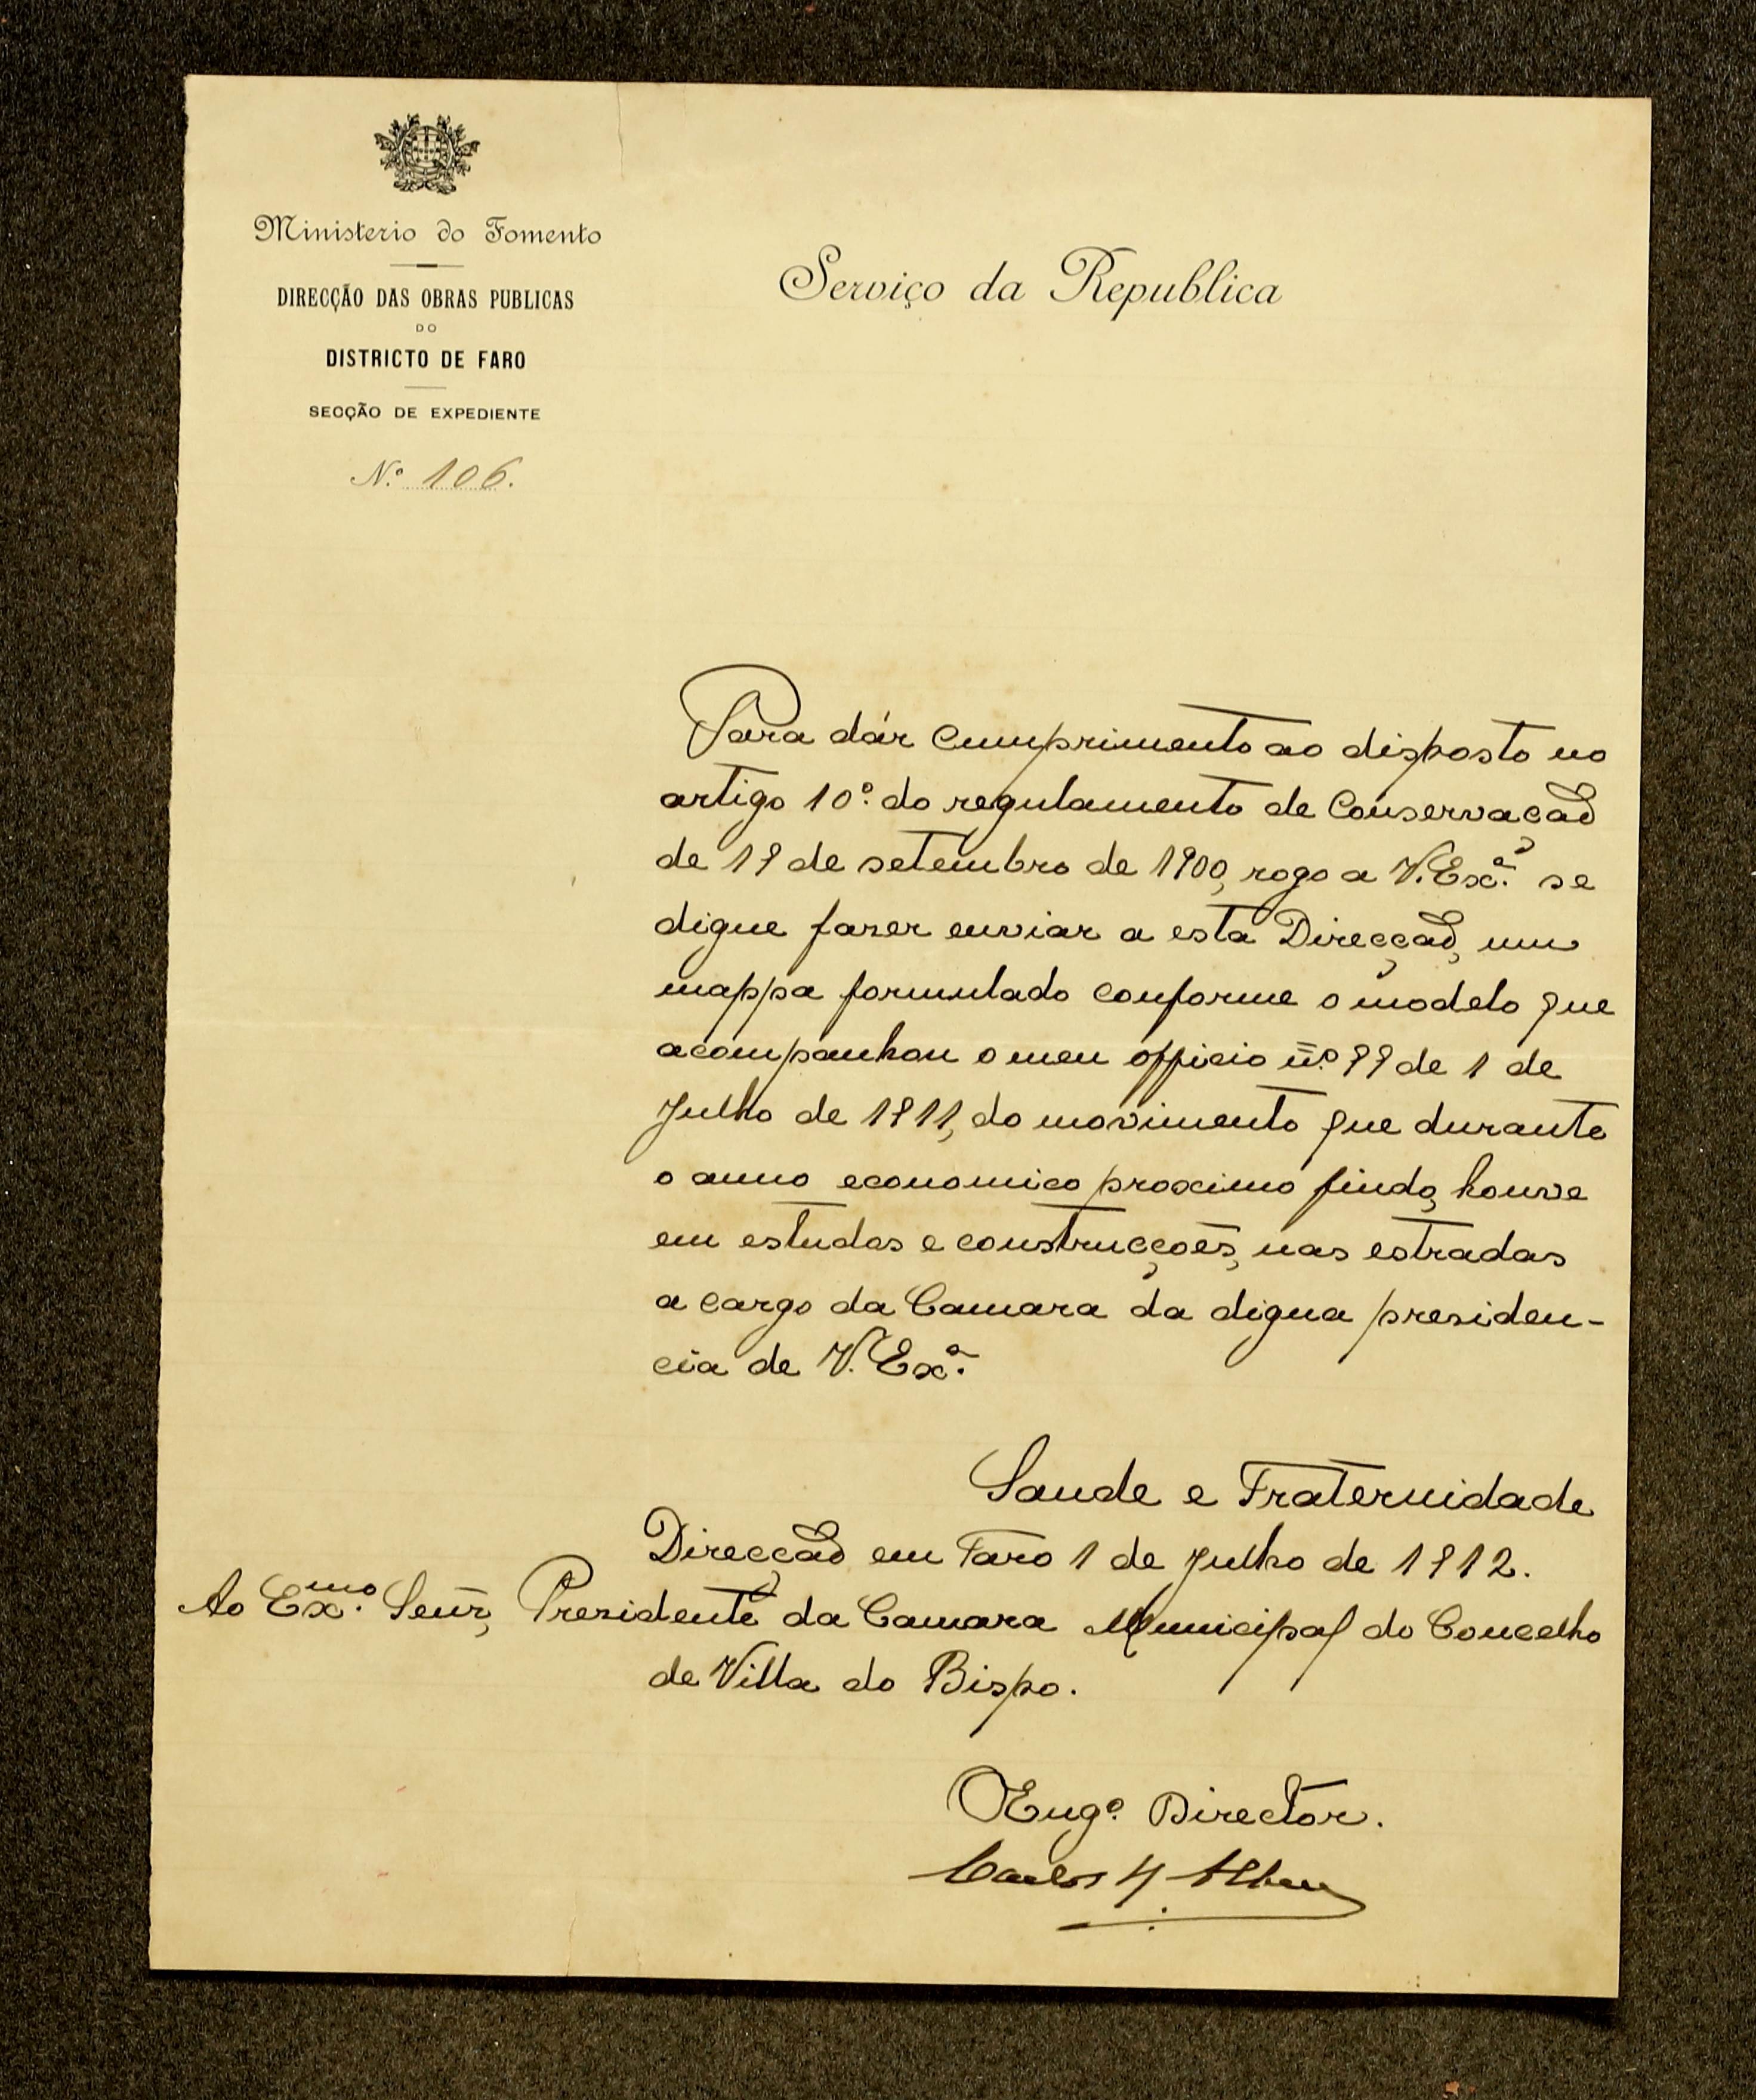 Ministerio do Fomento
DIRECÇÃO DAS OBRAS PUBLICAS
DO
DISTRICTO DE FARO
SECÇÃO DE EXPEDIENTE
N.º 106.
Serviço da Republica
Para dár cumprimento ao disposto no
artigo 10º. do regulamento de Conservação
de 19 de setembro de 1900, rogo a V. Exª. se
digne fazer enviar a esta Direcção, um
mappa formulado conforme o modelo que
acompanhou o meu officio nº. 99 de 1 de
Julho de 1911, do movimento que durante
o anno economico proximo findo, houve
em estudos e construcções, nas estradas
a cargo da Camara da digna presiden-
cia de V. Exª.
Saude e Fraternidade
Direcção em Faro 1 de Julho de 1912.
Ao Exmo. Senr, Presidente da Camara Municipal do Concelho
de Villa do Bispo.
O Engº. Director.
Carlos